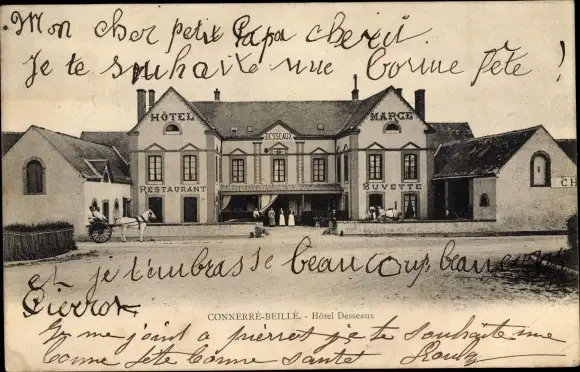 Mon cher petit Papa cherii.
Je te souhaite une bonne fête !
HÔTEL
DESSEAUX
MARGÉ
RESTAURANT
BUVETTE
CH
Et je t'embrasse beaucoup beaucoup
Pierrot
CONNERRÉ-BEILLÉ. - Hôtel Desseaux
je me joint a pierrot je te souhaite une
bonne fête bonne santer